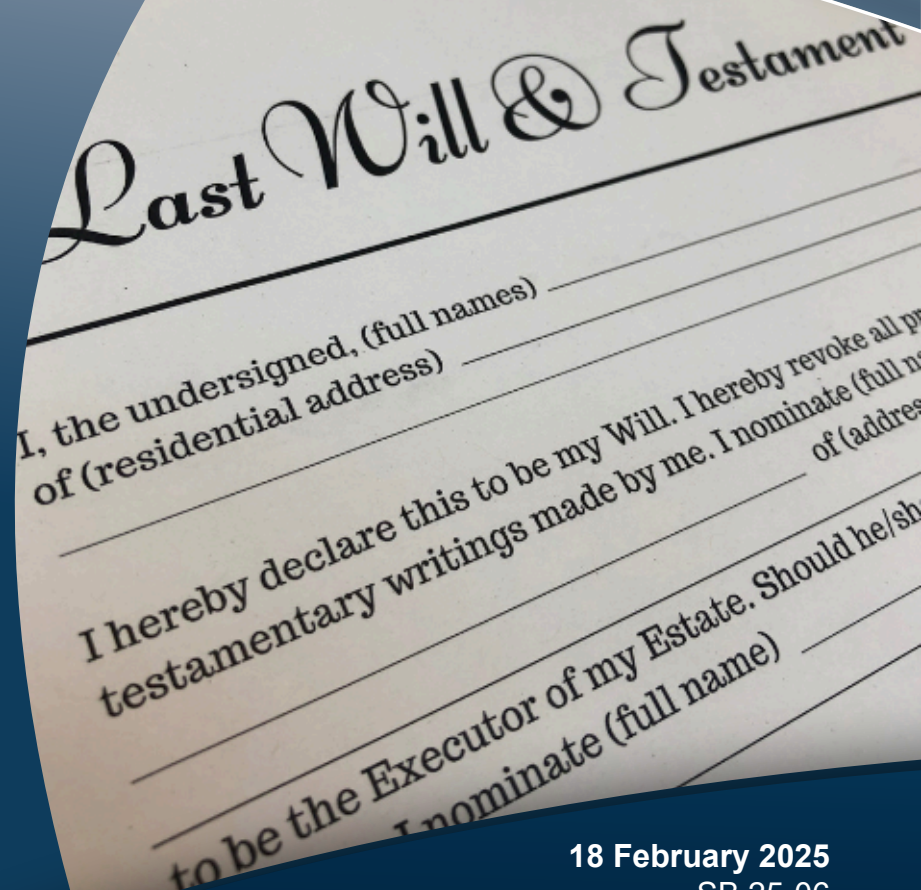 Last Will & Testament
I, the undersigned, (full names)
of (residential address)
I hereby declare this to be my Will. I hereby revoke all
testamentary writings made by me. I nominate (full
of (address
to be the Executor of my Estate. Should he/she
I nominate (full name)
18 February 2025
SB 25-06